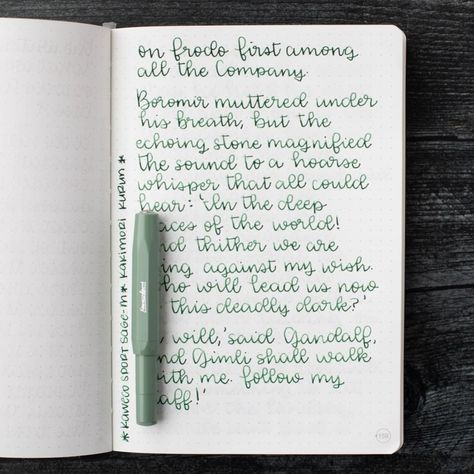 on frodo first among
all the Company.
Boromir muttered under
his breath, but the
echoing stone magnified
the sound to a hoarse
whisper that all could
hear: 'In the deep
aces of the world!
nd thither we are
ing against my wish.
ho will lead us now
this deadly dark?'
will,' said Gandalf,
nd Gimli shall walk
ith me. follow my
aff!'
* KAWECO SPORT SAGE-M * KAKIMORI KURUN *
Kaweco